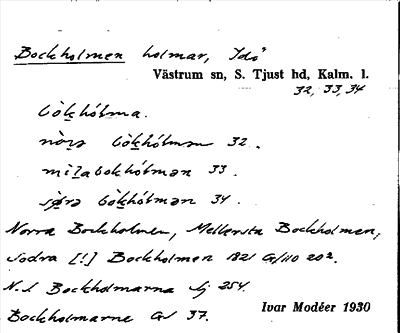 Bockholmen holmar, Idö
Västrum sn, S. Tjust hd, Kalm. l.
32, 33, 34
bòkhólma.
nòrə bòkhólmən 32.
mìlabokhólmən 33.
sø̀rə bòkhólmən 34.
Norra Bockholmen, Mellersta Bockholmen,
södra [!] Bockholmen 1821
Bockholmarna lj 254.
Bockholmarne GS 37.
Ivar Modéer 1930